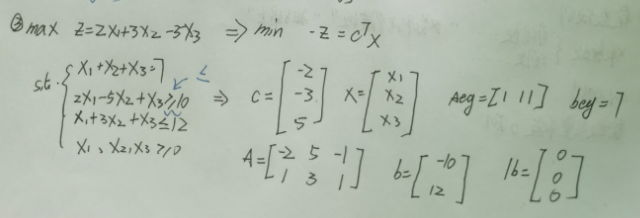 ③ max z=2x₁+3x₂-5x₃ ⇒ min -z=cᵀx
st. { x₁+x₂+x₃=7
2x₁-5x₂+x₃≥10 ≤
x₁+3x₂+x₃≤12
x₁, x₂, x₃≥0
⇒ c=[-2 -3 5] x=[x₁ x₂ x₃] Aeq=[1 1 1] beq=7
A=[-2 5 -1 1 3 1] b=[-10 12] lb=[0 0 0]